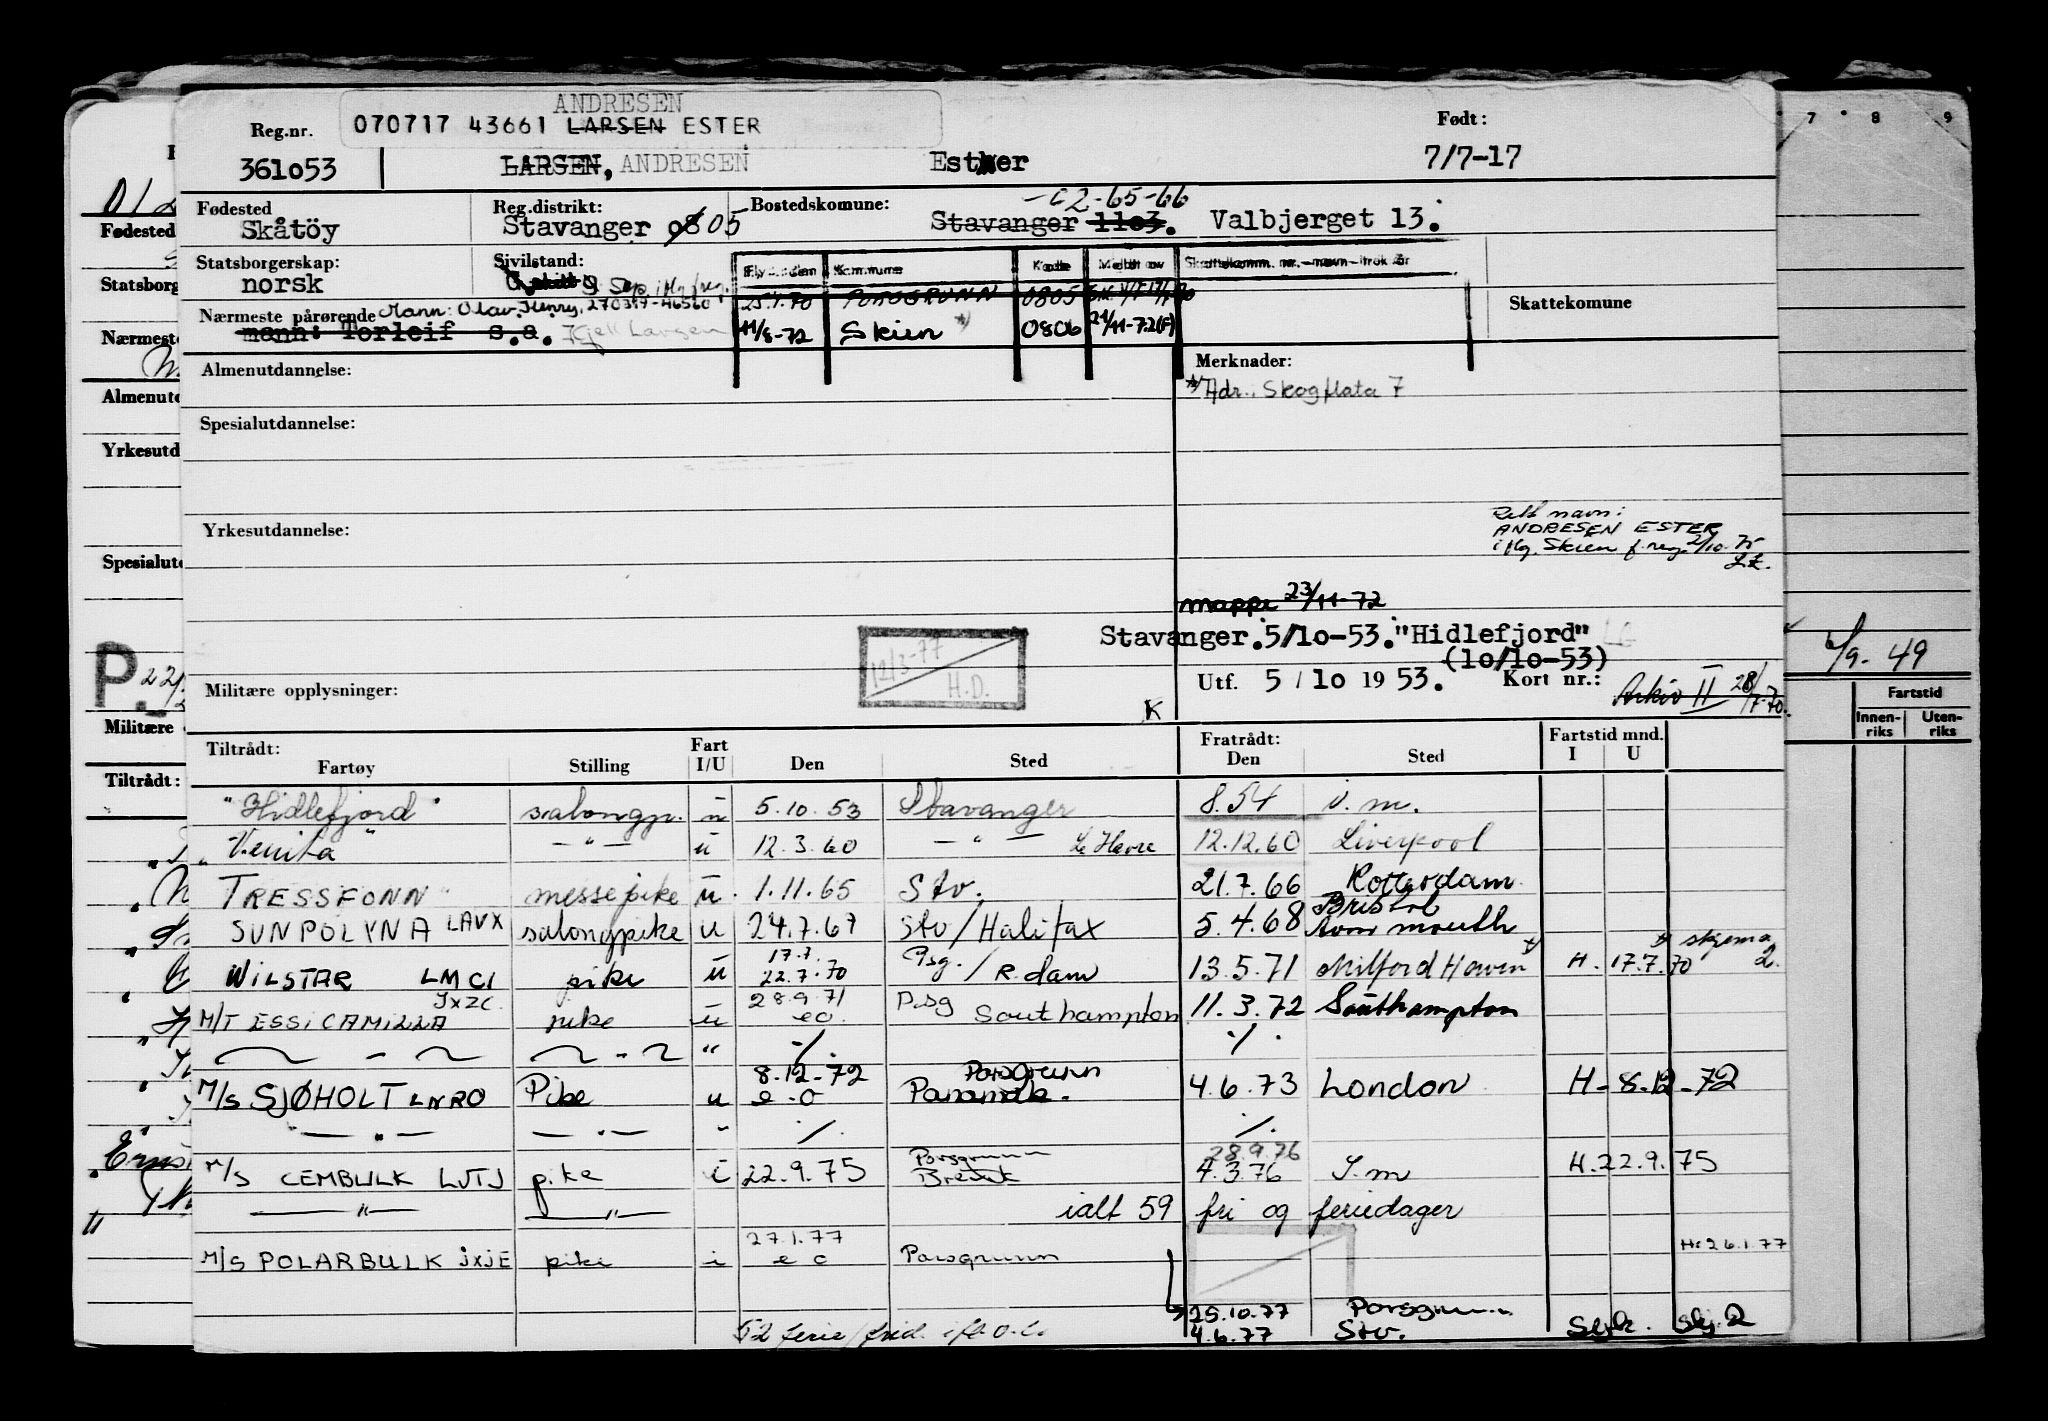 ANDRESEN
Reg.nr. 070717 43661 LARSEN ESTER Født:
361053 LARSEN, ANDRESEN Ester 7/7-17
-62-65-66
Fødested Reg.distrikt: Bostedskomune:
Skåtöy Stavanger 0805 Stavanger 1103. Valbjerget 13.
Statsborgerskap: Sivilstand: Kommune Kode
norsk
Nærmeste pårørende Mann: Olav Henry, 270317-46560 PORSGRUNN 0805 Skattekomune
mann: Torleif s.a. Kjell Larsen 11/8-72 Skien *) 0806 21/11-72(F)
Almenutdannelse: Merknader:
*) Adr.: Skogflata 7
Spesialutdannelse:
Rett navn:
ANDRESEN ESTER
Yrkesutdannelse: iflg. Skien f.reg. 2/10.75
mappe 23/11-72
Stavanger.5/10-53."Hidlefjord"
(10/10-53)
12/3-77
H.D.
Militære opplysninger: Utf. 5/10 1953. Kort nr.: Arkiv II 28/7.70.
K
Tiltrådt: Fart Fratrådt: Fartstid mnd.
Fartøy Stilling I/U Den Sted Den Sted I U
"Hidlefjord" salongp. u 5.10.53 Stavanger 8.54 i.m.
"Venita" — " — u 12.3.60 — " — Le Havre 12.12.60 Liverpool
TRESSFONN messepike u. 1.11.65 Stv. 21.7.66 Rotterdam
Bristol
SUNPOLYNA LAVX salongpike u 24.7.67 Stv/Halifax 5.4.68 Avonmouth
17.7. *) *) skjema
WILSTAR LMCI pike u 22.7.70 Psg./R.dam 13.5.71 Milford Haven H. 17.7.70 2.
JXZC. 28.9.71
M/T ESSI CAMILLA pike u eo. Psg Southampton 11.3.72 Southampton
— " — — " — " ./. ./.
8.12-72 Porsgrunn
M/S SJØHOLT LNRO Pike u e.o 4.6.73 London H-8.12-72
— " — — " — " ./. ./.
Porsgrunn 28.9.76
M/S CEMBULK LJTJ pike i 22.9.75 Brevik 4.3.76 I.m H.22.9.75
— " — — " — ialt 59 fri og feriedager
27.1.77 H: 26.1.77
M/S POLARBULK JXJE pike i eo Porsgrunn
25.10.77 Porsgrunn
52 ferie/frid. 4.6.77 Stv. Syk. Skj. 2
7 8 9
6/9-49
Fartstid
Innen-
riks
Uten-
riks
Fødested
Statsborg
Nærmeste
Almenutd
Yrkesutd
Spesialutd
P.
Militære
Tiltrådt: